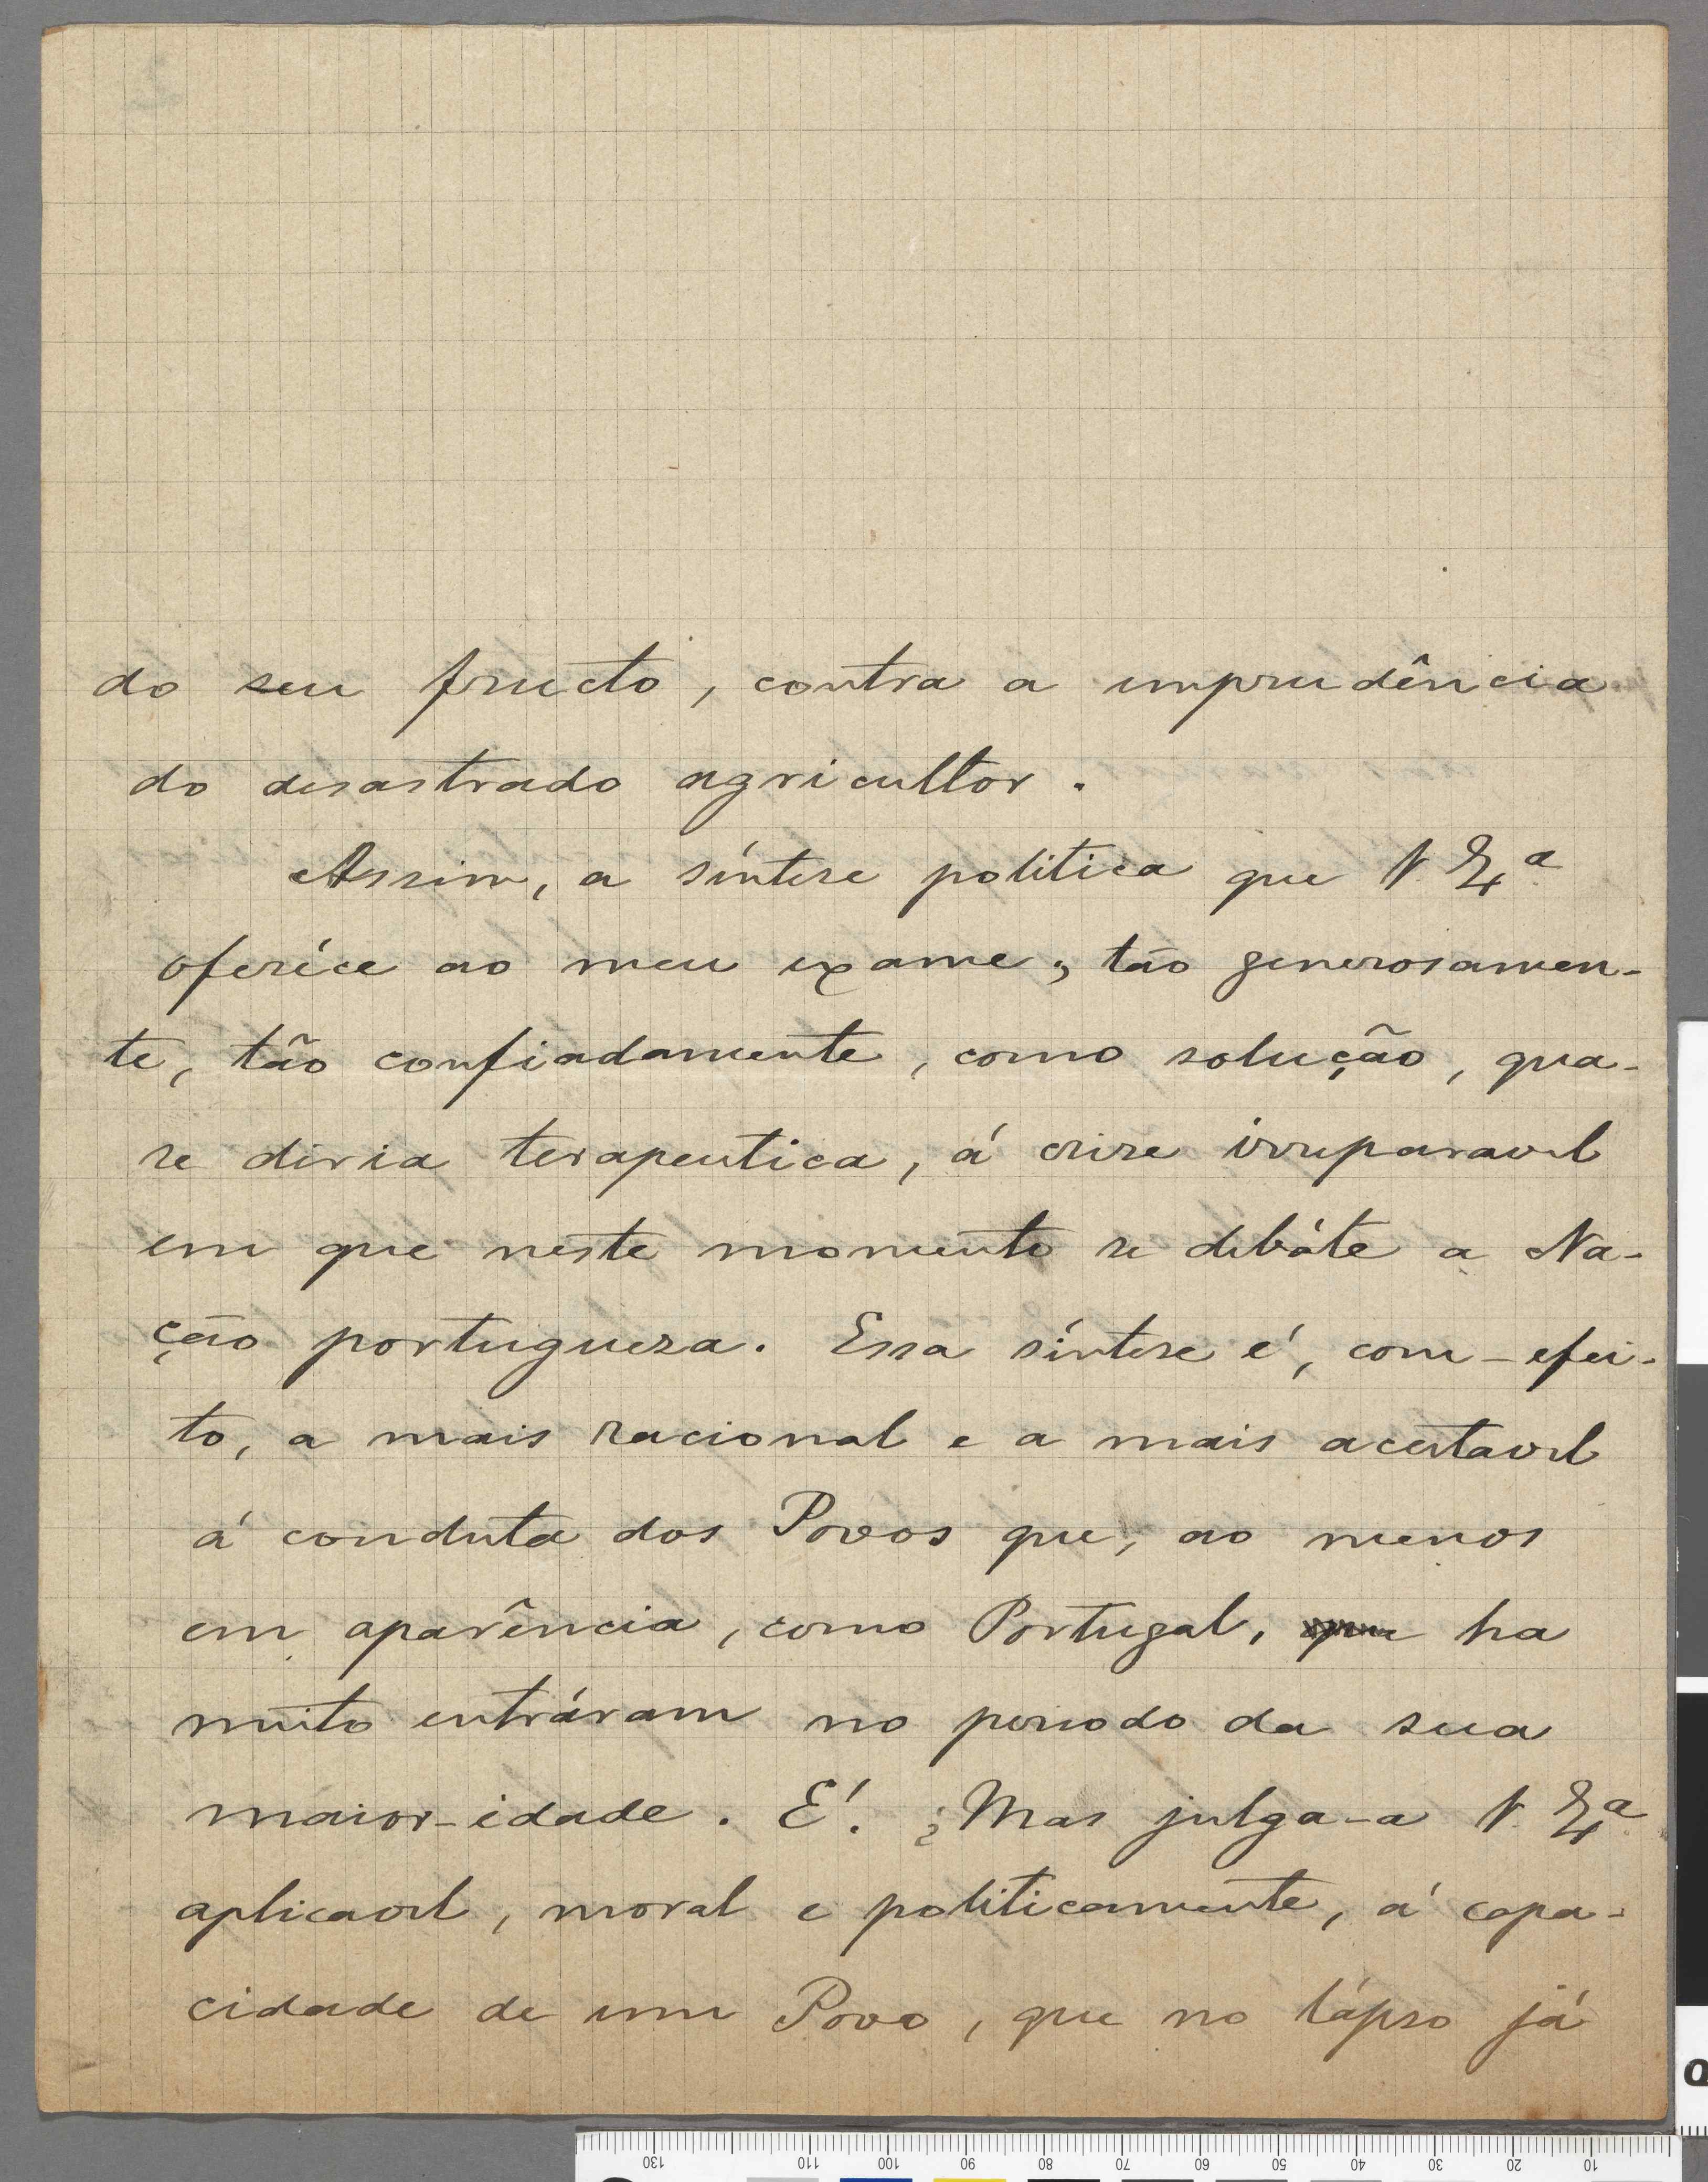 do seu fructo, contra a imprudência
do desastrado agricultor.
Assim, a síntese politica que V. Ex.ª
oferéce ao meu exame, tão generosamen-
te, tão confiadamente, como solução, qua-
se diria terapeutica, á crise irreparavel
em que neste momento se debáte a Na-
ção portuguesa. Essa síntese é, com-efei-
to, a mais racional e a mais aceitavel
á conduta dos Povos que, ao menos
em aparência, como Portugal, ha
muito entráram no periodo da sua
maior-idade. É! ¿Mas julga-a V. Ex.ª
aplicavel, moral e politicamente, á capa-
cidade de um Povo, que no lápso já
130 110 100 90 80 70 60 50 40 30 20 10